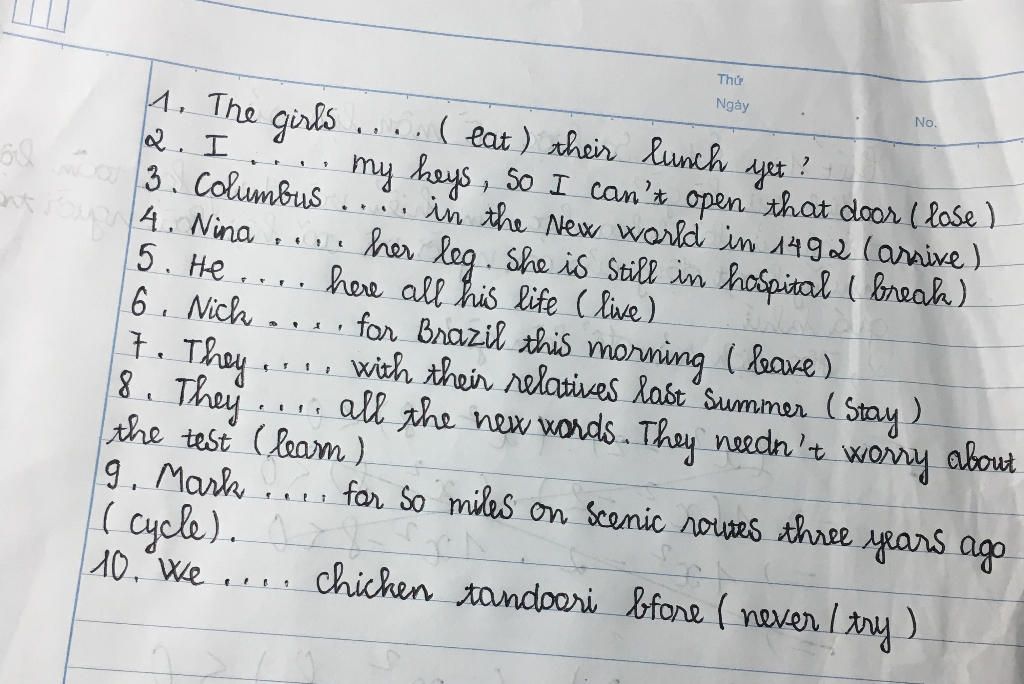 Thứ
Ngày
No.
1. The girls .... ( eat ) their lunch yet ?
2. I .... my keys, so I can't open that door ( lose )
3. Columbus .... in the New world in 1492 ( arrive )
4. Nina .... her leg. She is still in hospital ( break )
5. He .... here all his life ( live )
6. Nick .... for Brazil this morning ( leave )
7. They .... with their relatives last summer ( stay )
8. They .... all the new words. They needn't worry about
the test ( learn )
9. Mark .... for so miles on scenic routes three years ago
( cycle ).
10. We .... chicken tandoori bfore ( never / try )